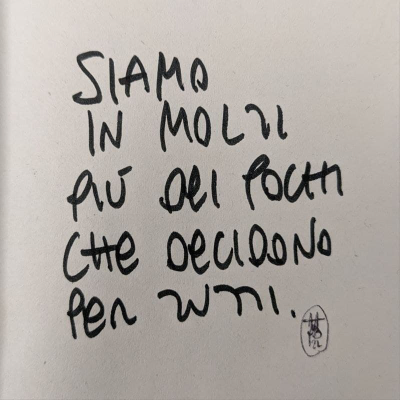 SIAMO
IN MOLTI
PIÙ DEI POCHI
CHE DECIDONO
PER TUTTI.